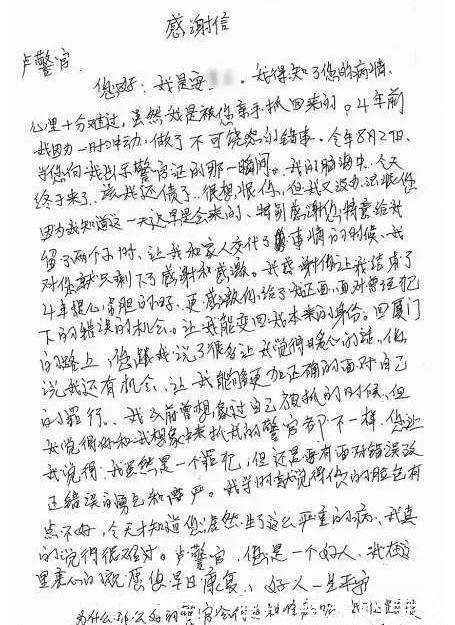 感谢信
卢警官
您好:我是安 。我得知了您的病情,
心里十分难过,虽然我是被您亲手抓回来的。4年前
我因为一时冲动,做了不可饶恕的错事。今年8月27日,
当您向我出示警官证的那一瞬间。我的脑海中,今天
终于来了,该我还债了。很想恨你,但我又没办法恨您
因为我知道这一天迟早是会来的、特别感谢您特意给我
留了两个小时、让我和家人交代了事情的时候、我
对你就只剩下了感谢和感激。我感谢你让我结束了
4年提心吊胆的日子、更感激你给了我面对曾经犯
下的错误的机会。让我能变回我本来的身份。回厦门
的路上,您跟我说了很多让我觉得暖心的话,您
说我还有机会,让我能够更加正确的面对自己
的罪行。我之前曾想象过自己被抓的时候,但
我觉得你和我想象中来抓我的警官都不一样,您让
我觉得:我虽然是一个罪犯,但还是要有面对错误改
正错误的勇气和尊严。我当时就觉得你的脸色有
点不好,今天才知道您居然生了这么严重的病、我真
的觉得很难过。卢警官,您是一个好人,我在这
里衷心的祝愿您早日康复,好人一生平安
为什么那么好的警官会